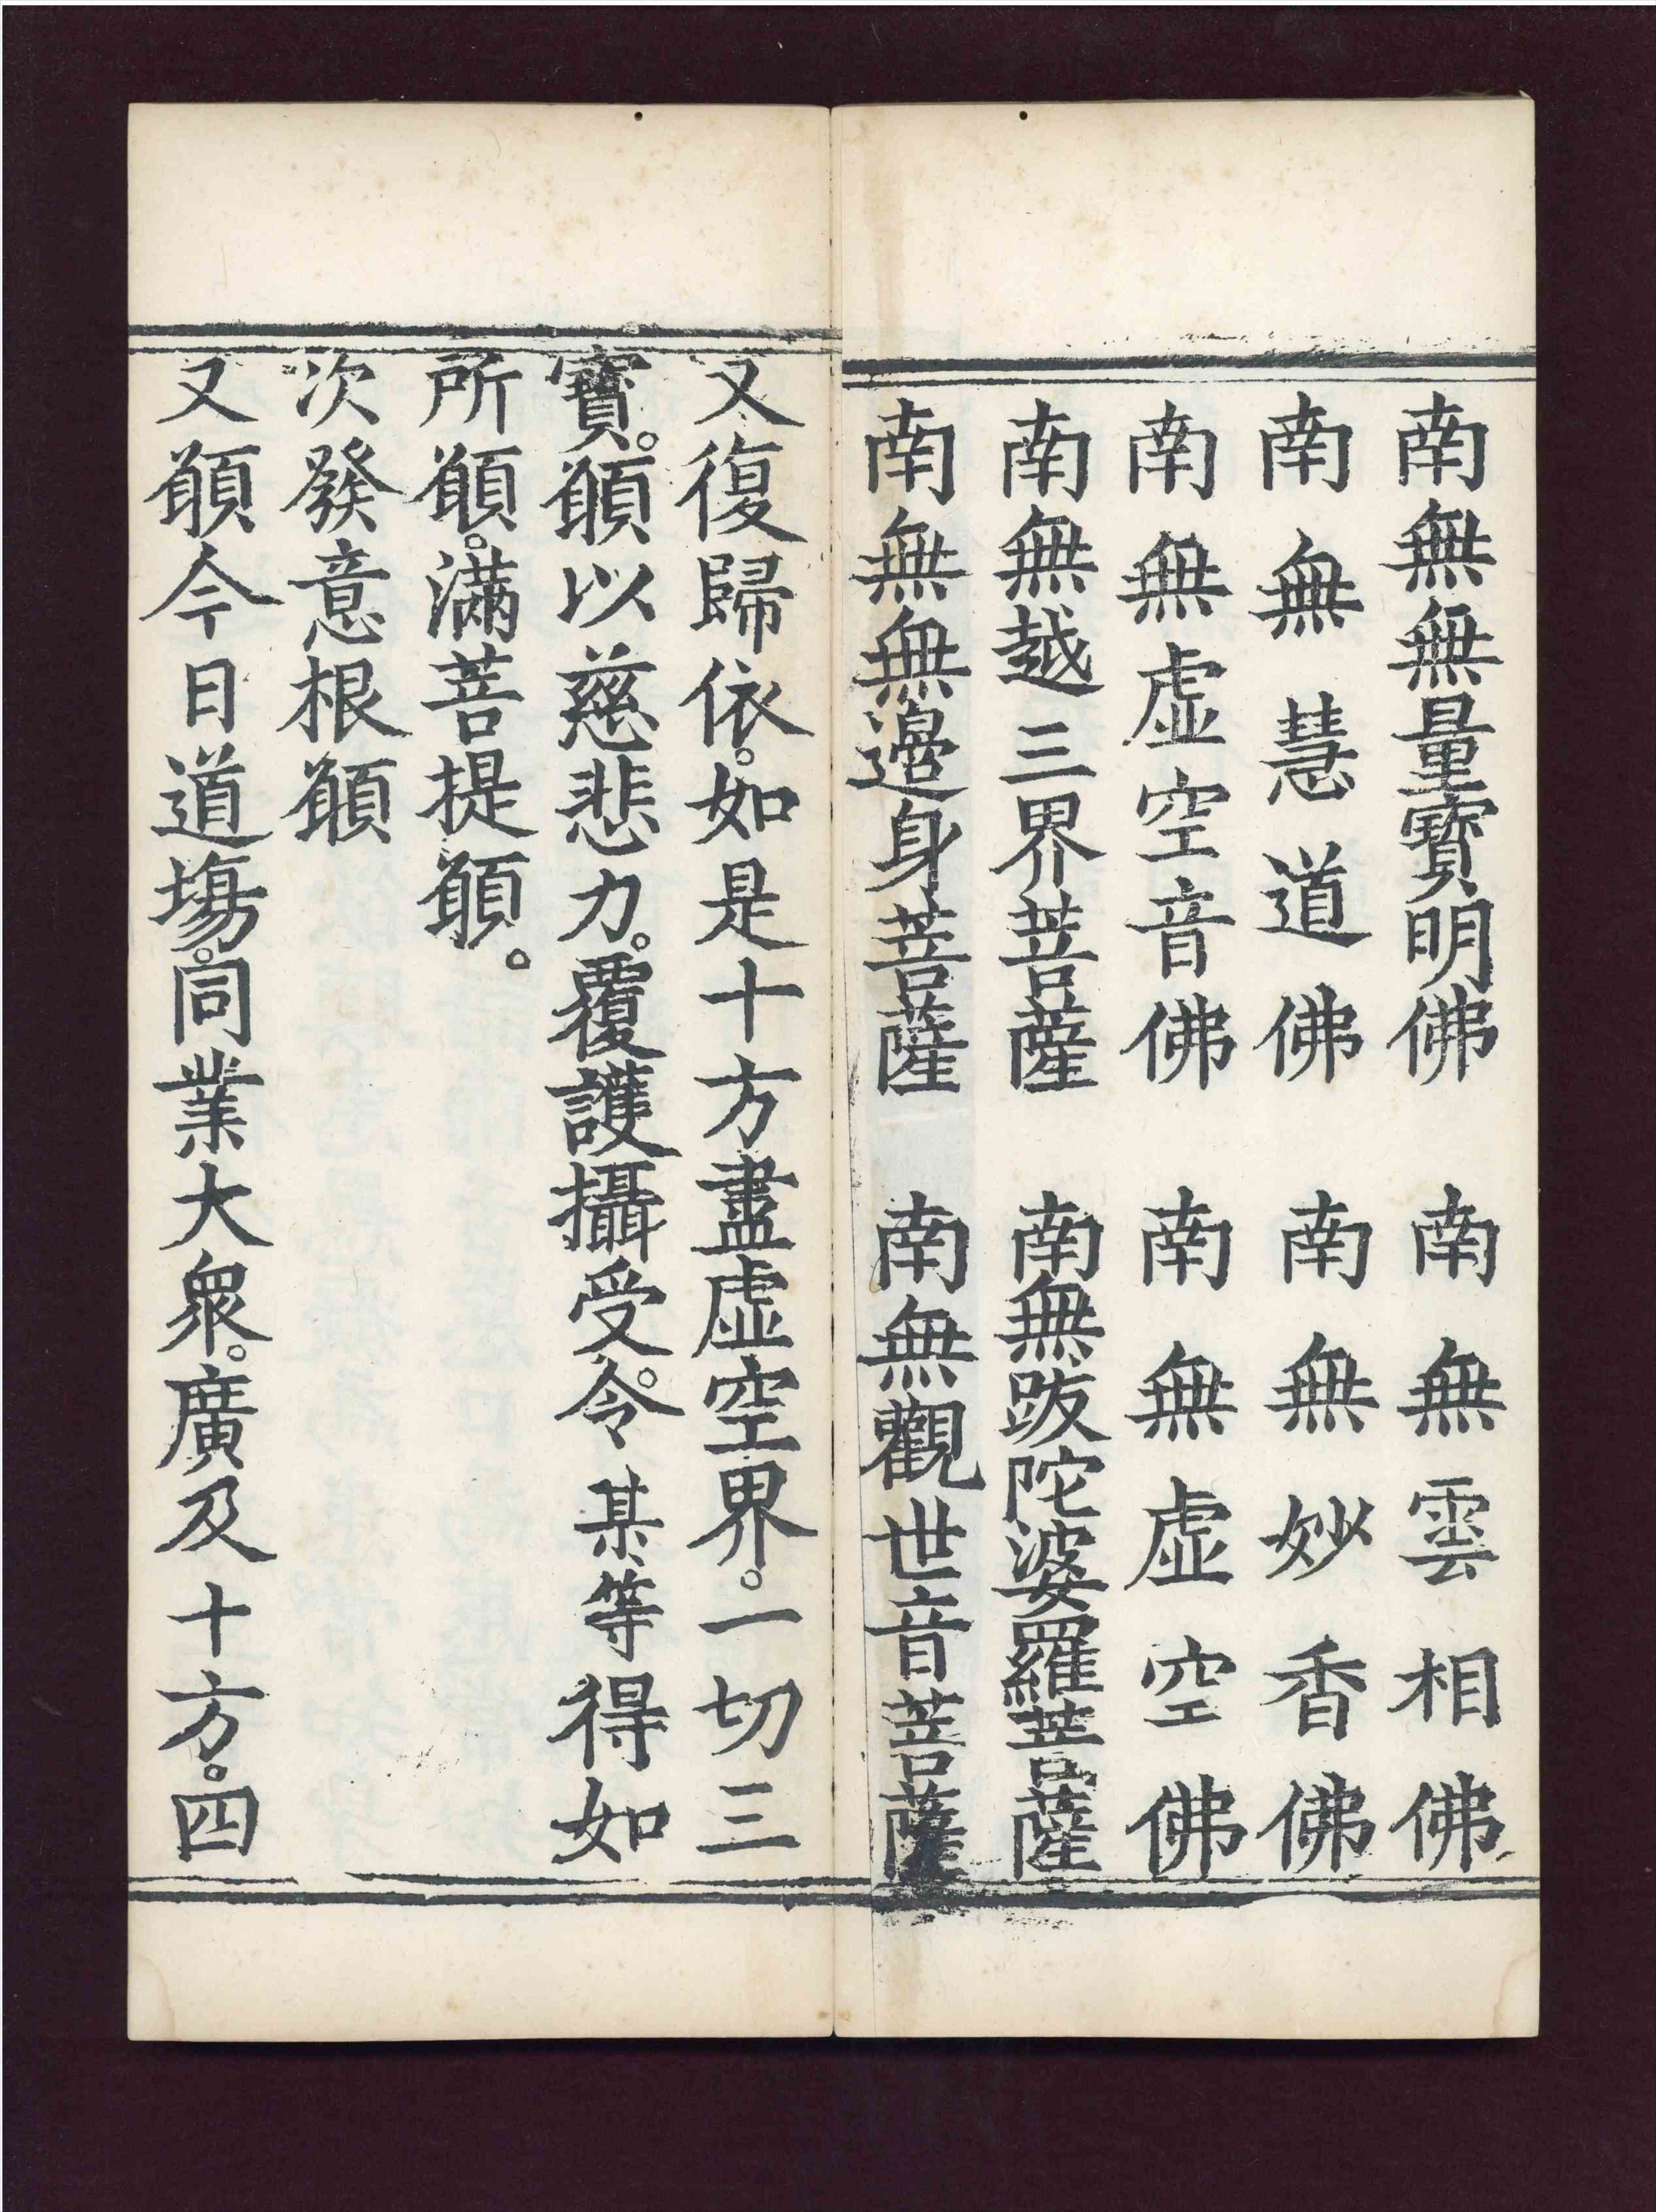 南無無量寶明佛　南無雲相佛
南無慧道佛　南無妙香佛
南無虛空音佛　南無虛空佛
南無越三界菩薩　南無跋陀婆羅菩薩
南無無邊身菩薩　南無觀世音菩薩
又復歸依。如是十方盡虛空界。一切三
寶。願以慈悲力。覆護攝受。令某等得如
所願。滿菩提願。
次發意根願
又願今日道塲。同業大眾。廣及十方。四